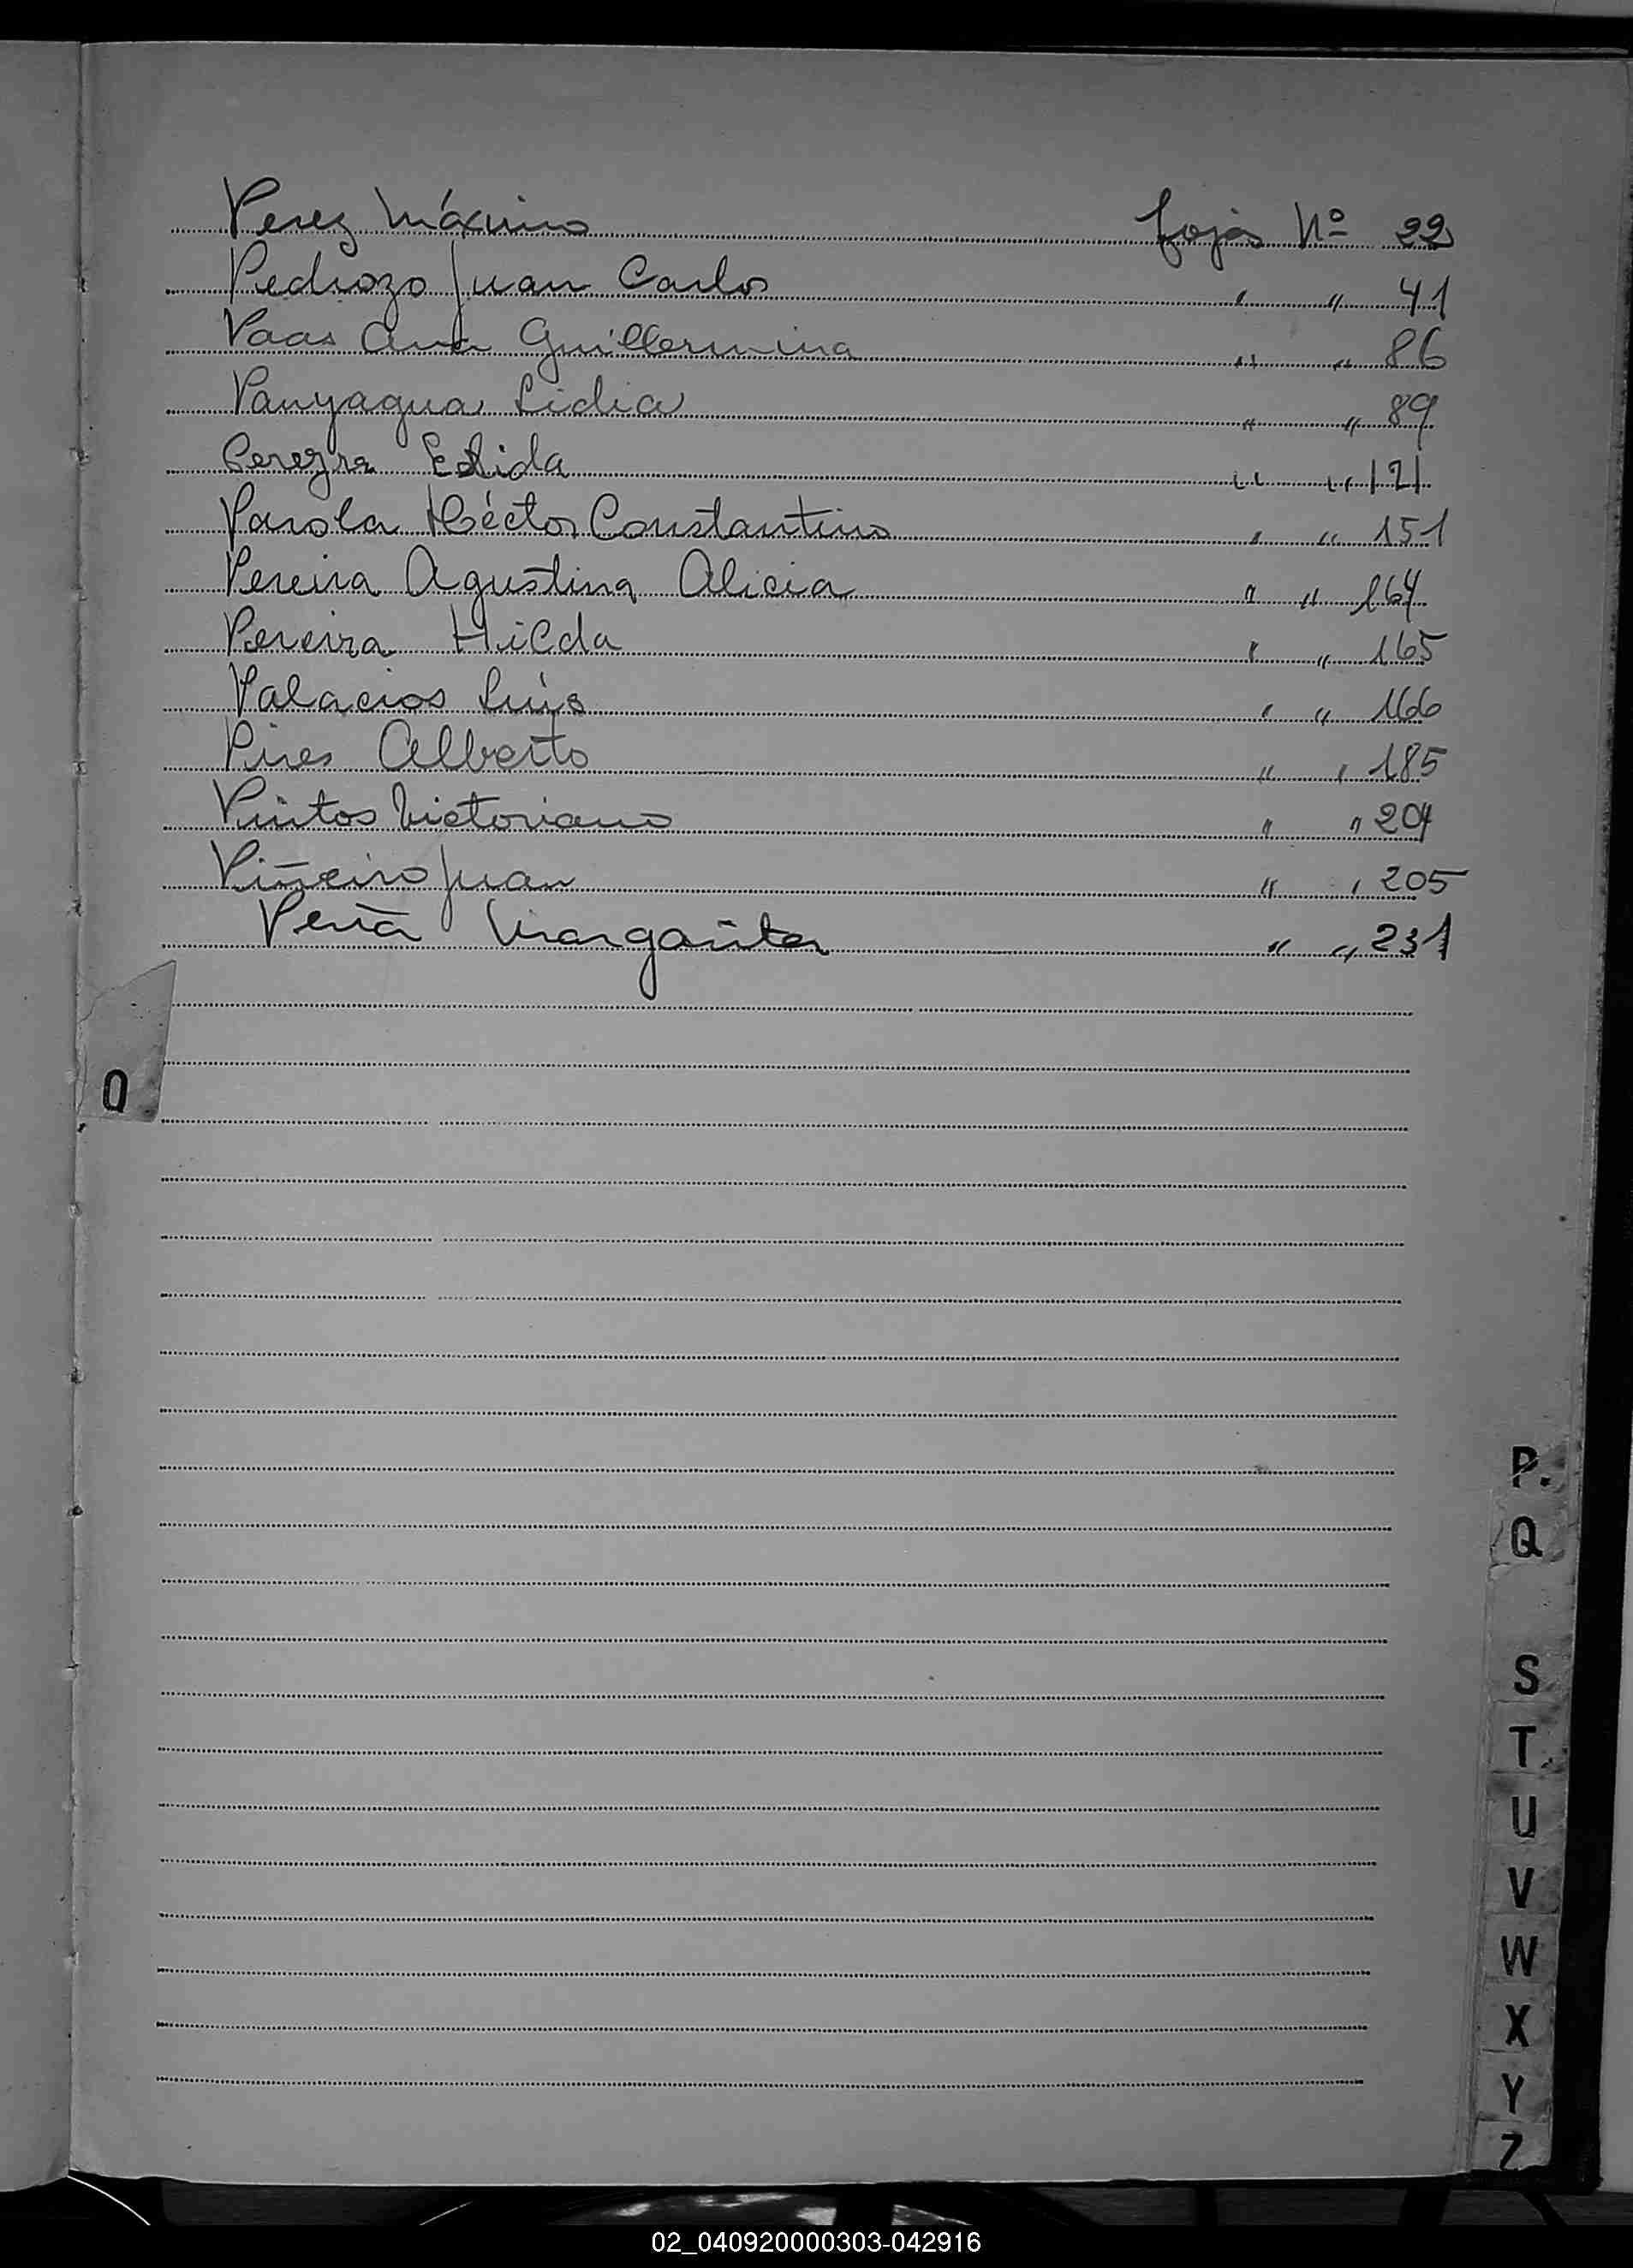 Perez Máximo fojas Nº 22
Pedrozo Juan Carlos " " 41
Paas Ana Guillermina " " 86
Panyagua Lidia " " 89
Pereyra Elida " " 121
Parola Héctor Constantino " " 151
Pereira Agustina Alicia " " 164
Pereira Hilda " " 165
Palacios Luis " " 166
Pires Alberto " " 185
Pintos Victoriano " " 204
Piñeiro Juan " " 205
Peña Margarita " " 231
O
P.
Q
S
T
U
V
W
X
Y
Z
02_040920000303-042916